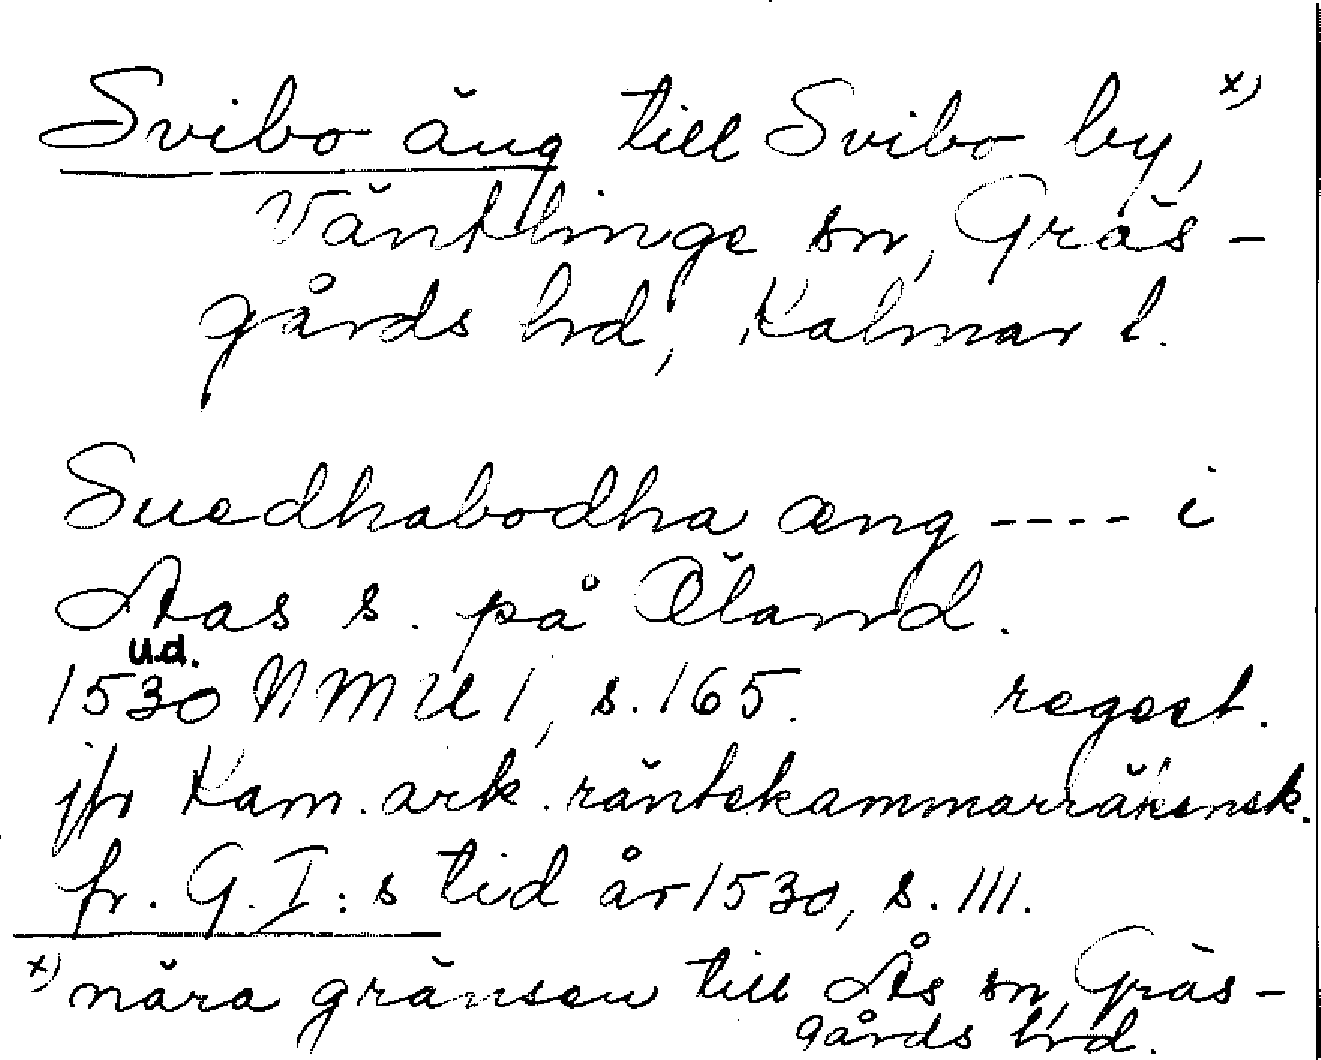 Svibo äng till Svibo by, x)
Väntlinge sn, Gräs-
gårds hrd, Kalmar l.
Suedhabodha æng ---- i
Aas s. på Öland.
u.d.
1530 NMU 1, s. 165. regest.
jfr Kam. ark. räntekammarräkensk.
fr. G. I:s tid år 1530, s. 111.
x) nära gränsen till Ås sn, Gräs-
gårds hrd.